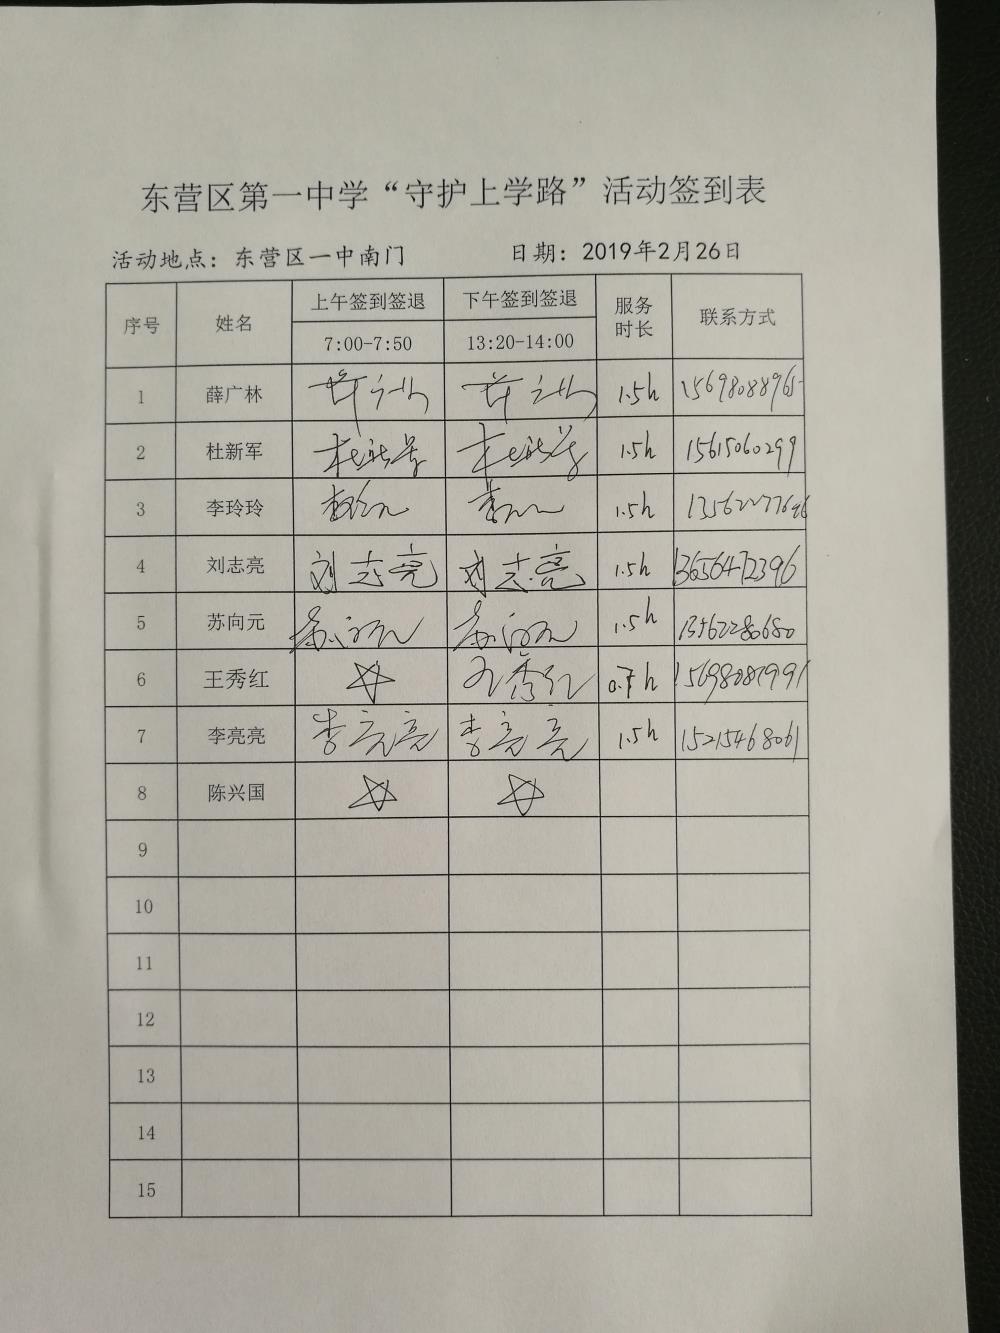 东营区第一中学“守护上学路”活动签到表
活动地点：东营区一中南门 日期：2019年2月26日
序号 姓名 上午签到签退 下午签到签退 服务时长 联系方式
7:00-7:50 13:20-14:00
1 薛广林 薛广林 薛广林 1.5h 15698088965
2 杜新军 杜新军 杜新军 1.5h 15615060299
3 李玲玲 1.5h
4 刘志亮 刘志亮 刘志亮 1.5h 13656472396
5 苏向元 苏向元 苏向元 1.5h 13562280680
6 王秀红 王秀红 0.7h 15698087991
7 李亮亮 李亮亮 李亮亮 1.5h 15215468061
8 陈兴国
9
10
11
12
13
14
15